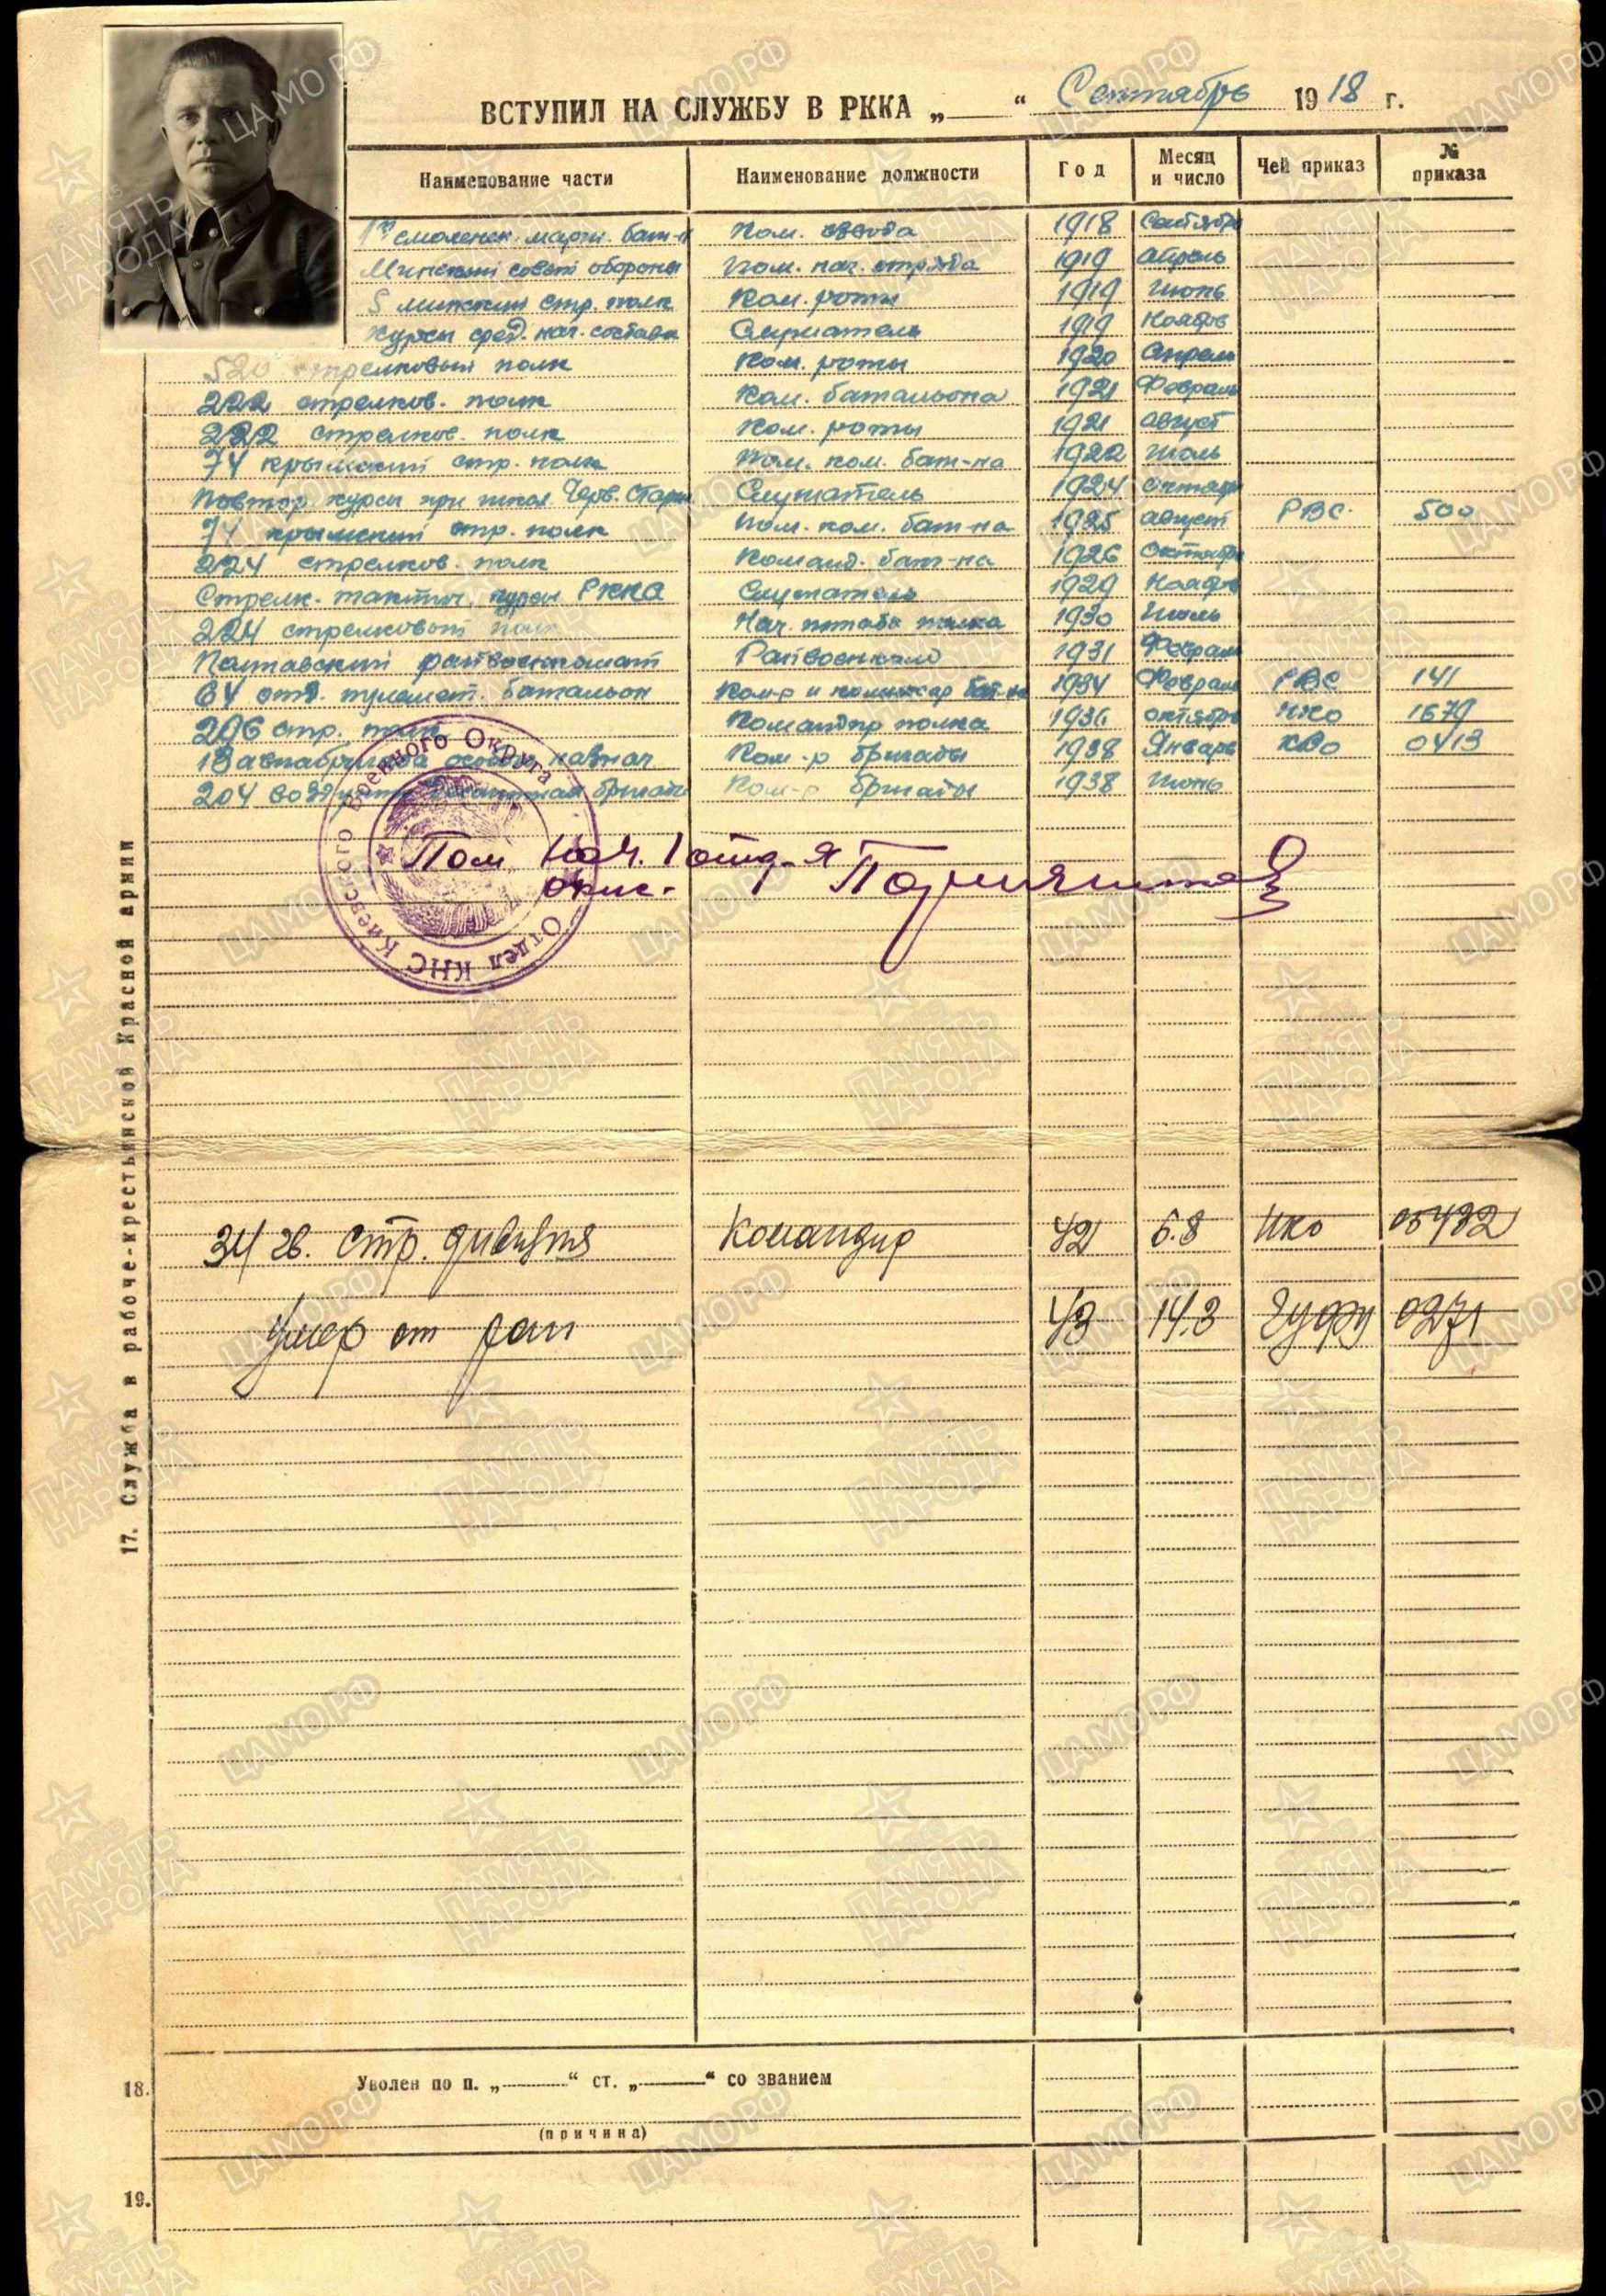 ВСТУПИЛ НА СЛУЖБУ В РККА „ “ Сентябрь 1918 г.
Наименование части Наименование должности Год Месяц и число Чей приказ № приказа
1й смоленск. марш. бат-н Ком. взвода 1918 Сентябрь
Минский совет обороны Пом. нач. отряда 1919 Апрель
5 минский стр. полк Ком. роты 1919 Июнь
Курсы сред. нач. состава Слушатель 1919 Ноябрь
520 стрелковый полк Ком. роты 1920 Апрель
222 стрелков. полк Ком. батальона 1921 Февраль
222 стрелков. полк Ком. роты 1921 Август
74 крымский стр. полк Пом. ком. бат-на 1922 Июль
Повтор. курсы при школ. Черв. Старш Слушатель 1924 Октябрь
74 крымский стр. полк Пом. ком. бат-на 1925 Август РВС 500
224 стрелков. полк Команд. бат-на 1926 Октябрь
Стрелк. тактич. курсы РККА Слушатель 1929 Ноябрь
224 стрелковый полк Нач. штаба полка 1930 Июль
Полтавский райвоенкомат Райвоенком 1931 Февраль
64 отд. пулемет. батальон Ком-р и комиссар бат-на 1934 Февраль РВС 141
296 стр. полк Командир полка 1936 Октябрь НКО 1679
13 авиабригада особого назнач Ком-р бригады 1938 Январь КВО 0413
204 воздушно десантная бригады Ком-р бригады 1938 Июнь
Пом Нач. 1 отд-я
Отдел КНС Киевского Военного Округа
34 гв. стр. дивизия Командир 42 6.8 НКО 05432
Умер от ран 43 14.3 ГУФУ 0271
17. Служба в рабоче-крестьянской Красной армии
18. Уволен по п. „ “ ст. „ “ со званием
(причина)
19.
ЦАМО РФ
ПАМЯТЬ НАРОДА